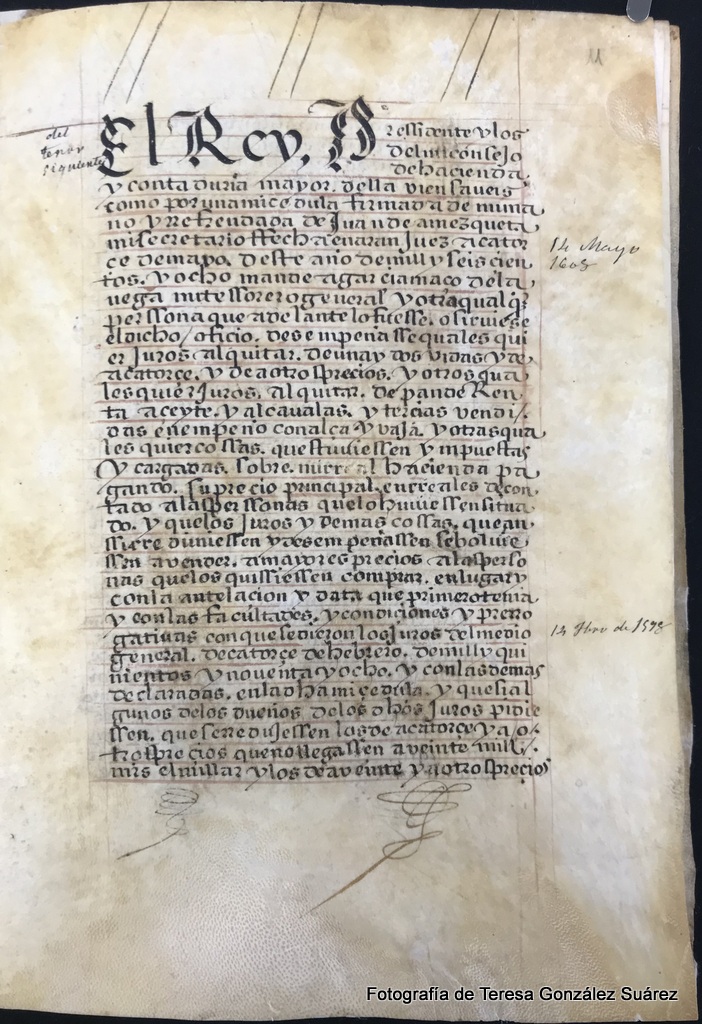 11
del
tenor
siguiente
El Rey, Presidente y los
del mi consejo
de hacienda
y contaduria mayor. della vien saveis
como por una mi cedula firmada de mi ma
no y Refrendada de Juan de amezqueta
mi secretario ffecha en aranjuez a cator
ce de mayo. deste año de mill y seiscien
tos. y ocho mande a garcia maço de la
vega mi tessorero general y otra qualqr
perssona que adelante lo fuesse. o sirviese
el dicho / oficio. desempenasse quales qui
er Juros al quitar. de una y dos vidas y de
a catorçe. y de a otros precios. y otros qua
les quier Juros. al quitar. de pan de Ren
ta aceyte. y alcavalas. y tercias vendi /.
das en empeno con alça y vaja. y otras qua
les quier cossas. que stuviessen ympuestas
y cargadas. sobre. mi rreal hacienda pa
gando. su precio principal. en rreales de con
tado a las perssonas que lo huviessen situa
do. y que los Juros y demas cossas. que an
ssi rredimiessen y desempenassen se bolvie
ssen a vender. a mayores precios a las perso
nas que los quissiessen comprar. en lugar y
con la antelacion y data que primero tenia
y con las facultades. y condiciones y prerro
gativas con que se dieron los Juros del medio
general. de catorçe de hebrero. de mill y qui
nientos y noventa y ocho. y con las demas
declaradas. en la dha mi cedula. y que si al
gunos de los dueños de los dhos Juros pidie
ssen. que se rredujessen los de a catorçe y a /o
tros precios que no llegassen a veinte mill /.
mrs el millar y los de a veinte y a otros precios
14 Mayo
1608
14 Hbro de 1598
Fotografía de Teresa González Suárez